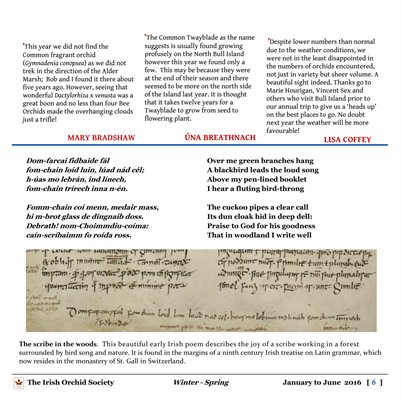 "This year we did not find the
Common fragrant orchid
(Gymnadenia conopsea) as we did not
trek in the direction of the Alder
Marsh; Bob and I found it there about
five years ago. However, seeing that
wonderful Dactylorhiza x venusta was a
great boon and no less than four Bee
Orchids made the overhanging clouds
just a trifle!
MARY BRADSHAW
"The Common Twayblade as the name
suggests is usually found growing
profusely on the North Bull Island
however this year we found only a
few. This may be because they were
at the end of their season and there
seemed to be more on the north side
of the Island last year. It is thought
that it takes twelve years for a
Twayblade to grow from seed to
flowering plant.
ÚNA BREATHNACH
"Despite lower numbers than normal
due to the weather conditions, we
were not in the least disappointed in
the numbers of orchids encountered,
not just in variety but sheer volume. A
beautiful sight indeed. Thanks go to
Marie Hourigan, Vincent Sex and
others who visit Bull Island prior to
our annual trip to give us a 'heads up'
on the best places to go. No doubt
next year the weather will be more
favourable!
LISA COFFEY
Dom-farcai fidbaide fál
fom-chain loíd luin, lúad nád cél;
h-úas mo lebrán, ind línech,
fom-chain trírech inna n-én.
Fomm-chain coí menn, medair mass,
hi m-brot glass de dingnaib doss.
Debrath! nom-Choimmdiu-coíma:
caín-scríbaimm fo roída ross.
Over me green branches hang
A blackbird leads the loud song
Above my pen-lined booklet
I hear a fluting bird-throng
The cuckoo pipes a clear call
Its dun cloak hid in deep dell:
Praise to God for his goodness
That in woodland I write well
The scribe in the woods. This beautiful early Irish poem describes the joy of a scribe working in a forest
surrounded by bird song and nature. It is found in the margins of a ninth century Irish treatise on Latin grammar, which
now resides in the monastery of St. Gall in Switzerland.
The Irish Orchid Society Winter - Spring January to June 2016 [ 6 ]